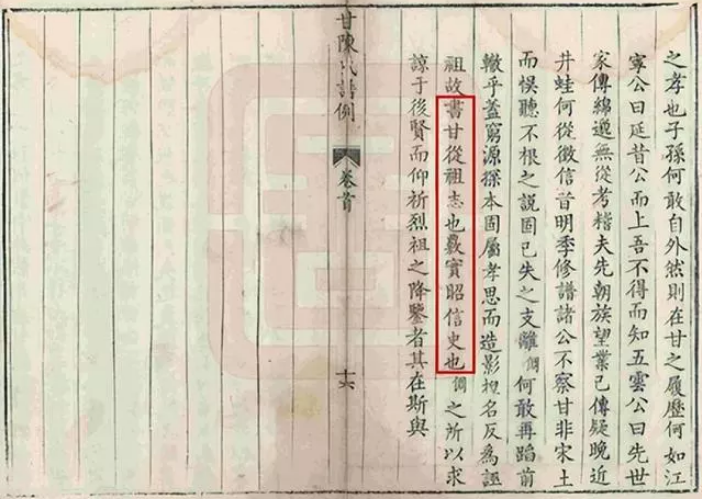 之孝也子孫何敢自外然則在甘之履歷何如江
寧公曰延昔公而上吾不得而知五雲公曰先世
家傳綿邈無從考稽夫先朝族望業已傳疑晚近
井蛙何從徵信昔明季修譜諸公不察甘非宋土
而悞聽不根之說固已失之支離倜何敢再蹈前
轍乎蓋窮源探本固屬孝思而造影捏名反為誣
祖故書甘從祖志也覈實昭信史也倜之所以求
諒于後賢而仰祈烈祖之降鑒者其在斯與
甘陳氏譜例
卷首
十六